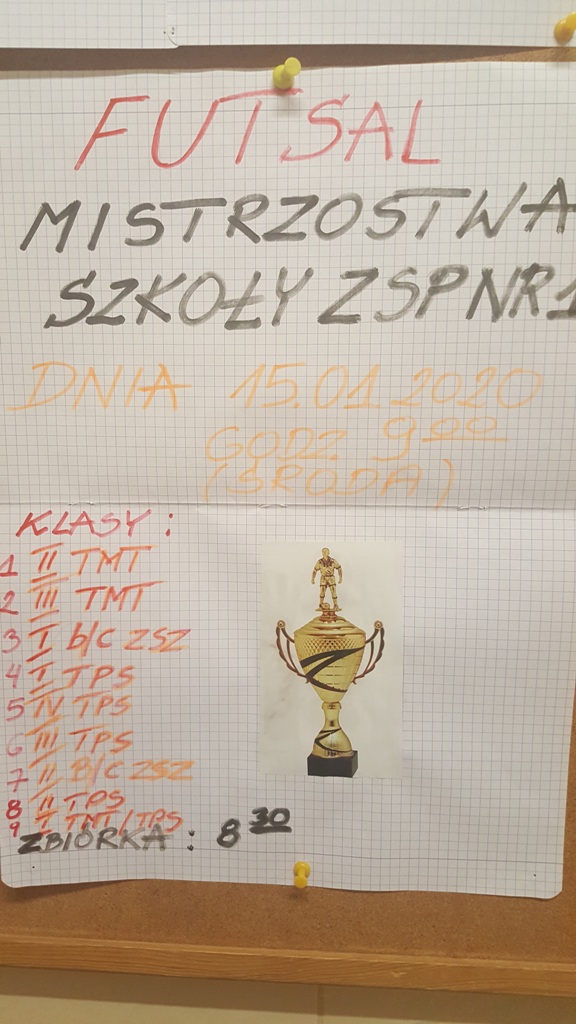 FUTSAL
MISTRZOSTWA
SZKOŁY ZSP NR1
DNIA 15.01.2020
GODZ. 9 00
(ŚRODA)
KLASY :
1 II TMT
2 III TMT
3 I b/c ZSZ
4 I TPS
5 IV TPS
6 III TPS
7 II B/C ZSZ
8 II TPS
9 I TMT/TPS
ZBIÓRKA : 8 30